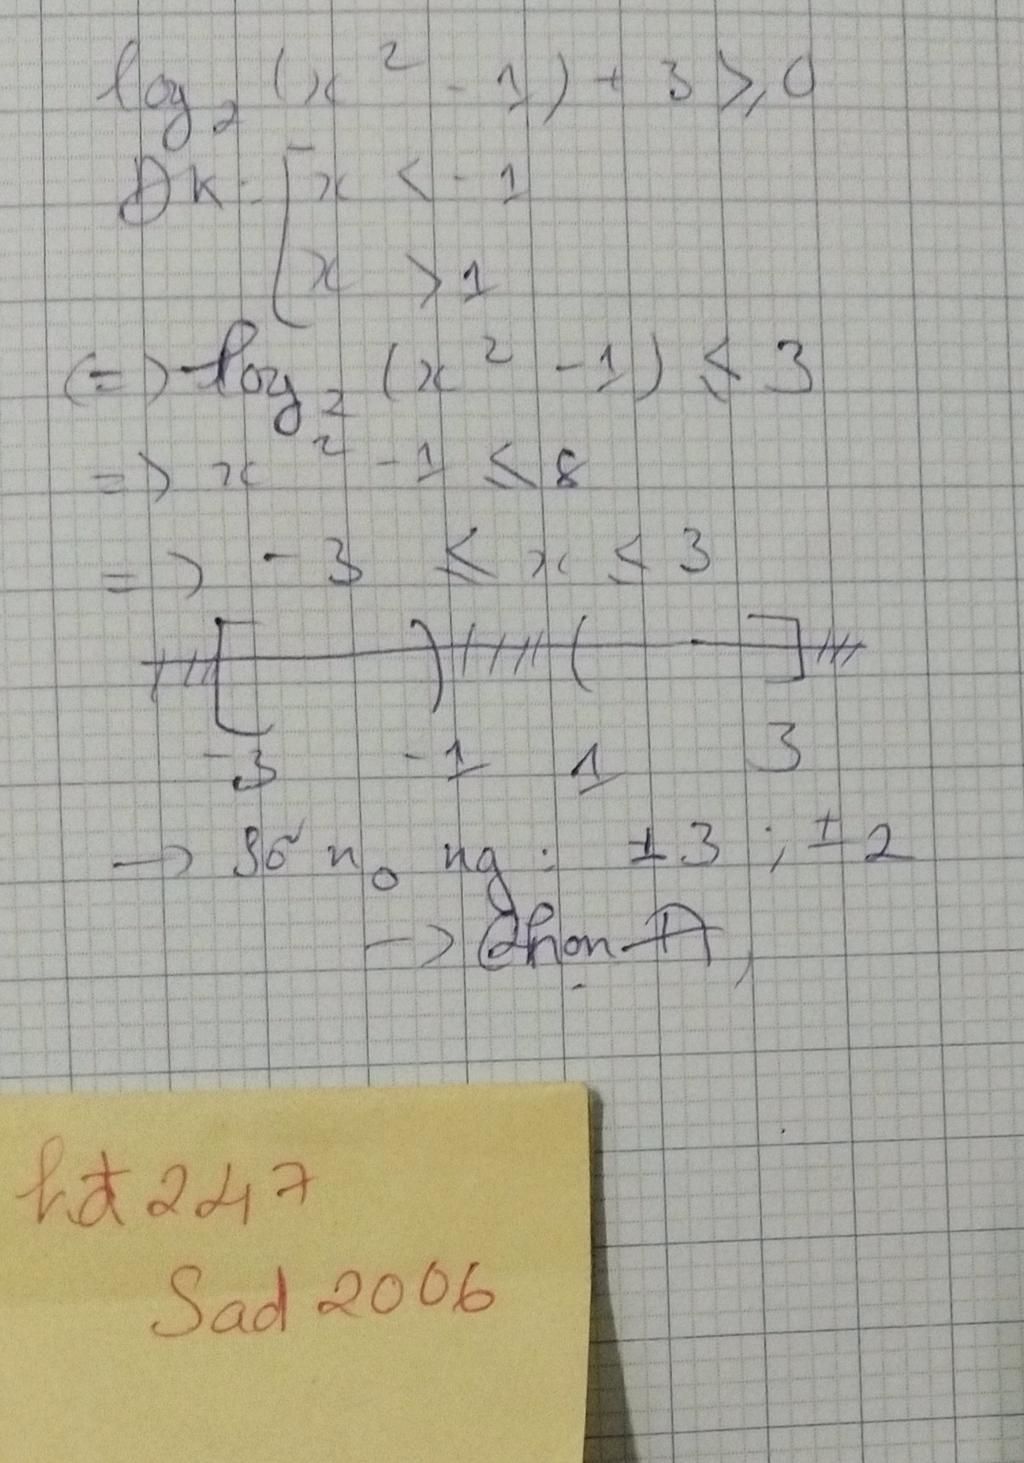 log₂ (x² - 1) + 3 ≥ 0
ĐK: [ x < -1
x > 1
(=) -log₂ (x² - 1) ≤ 3
=> x² - 1 ≤ 8
=> -3 ≤ x ≤ 3
-3 -1 1 3
-> Số n₀ ng : ±3 ; ±2
-> Chọn A
hđ247
Sad 2006